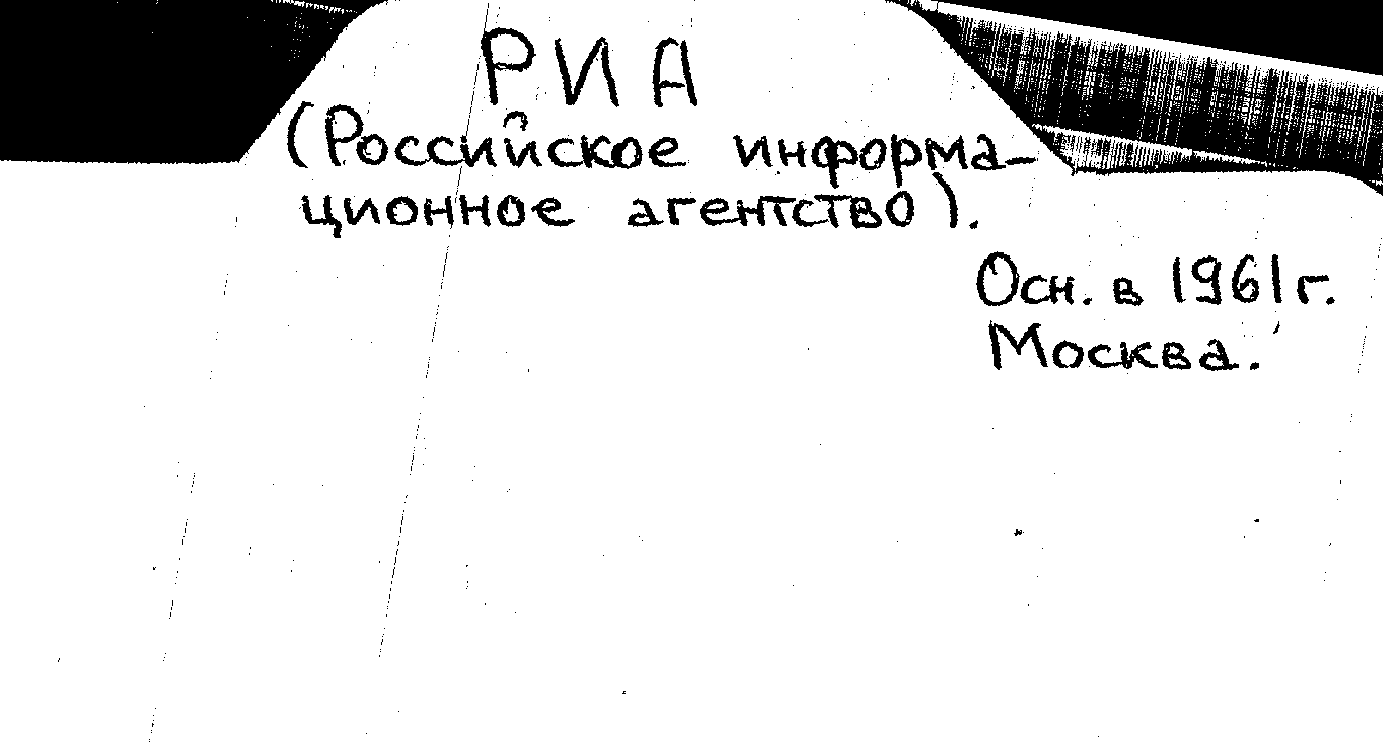 РИА
(Российское информа-
ционное агентство).
Осн. в 1961 г.
Москва.